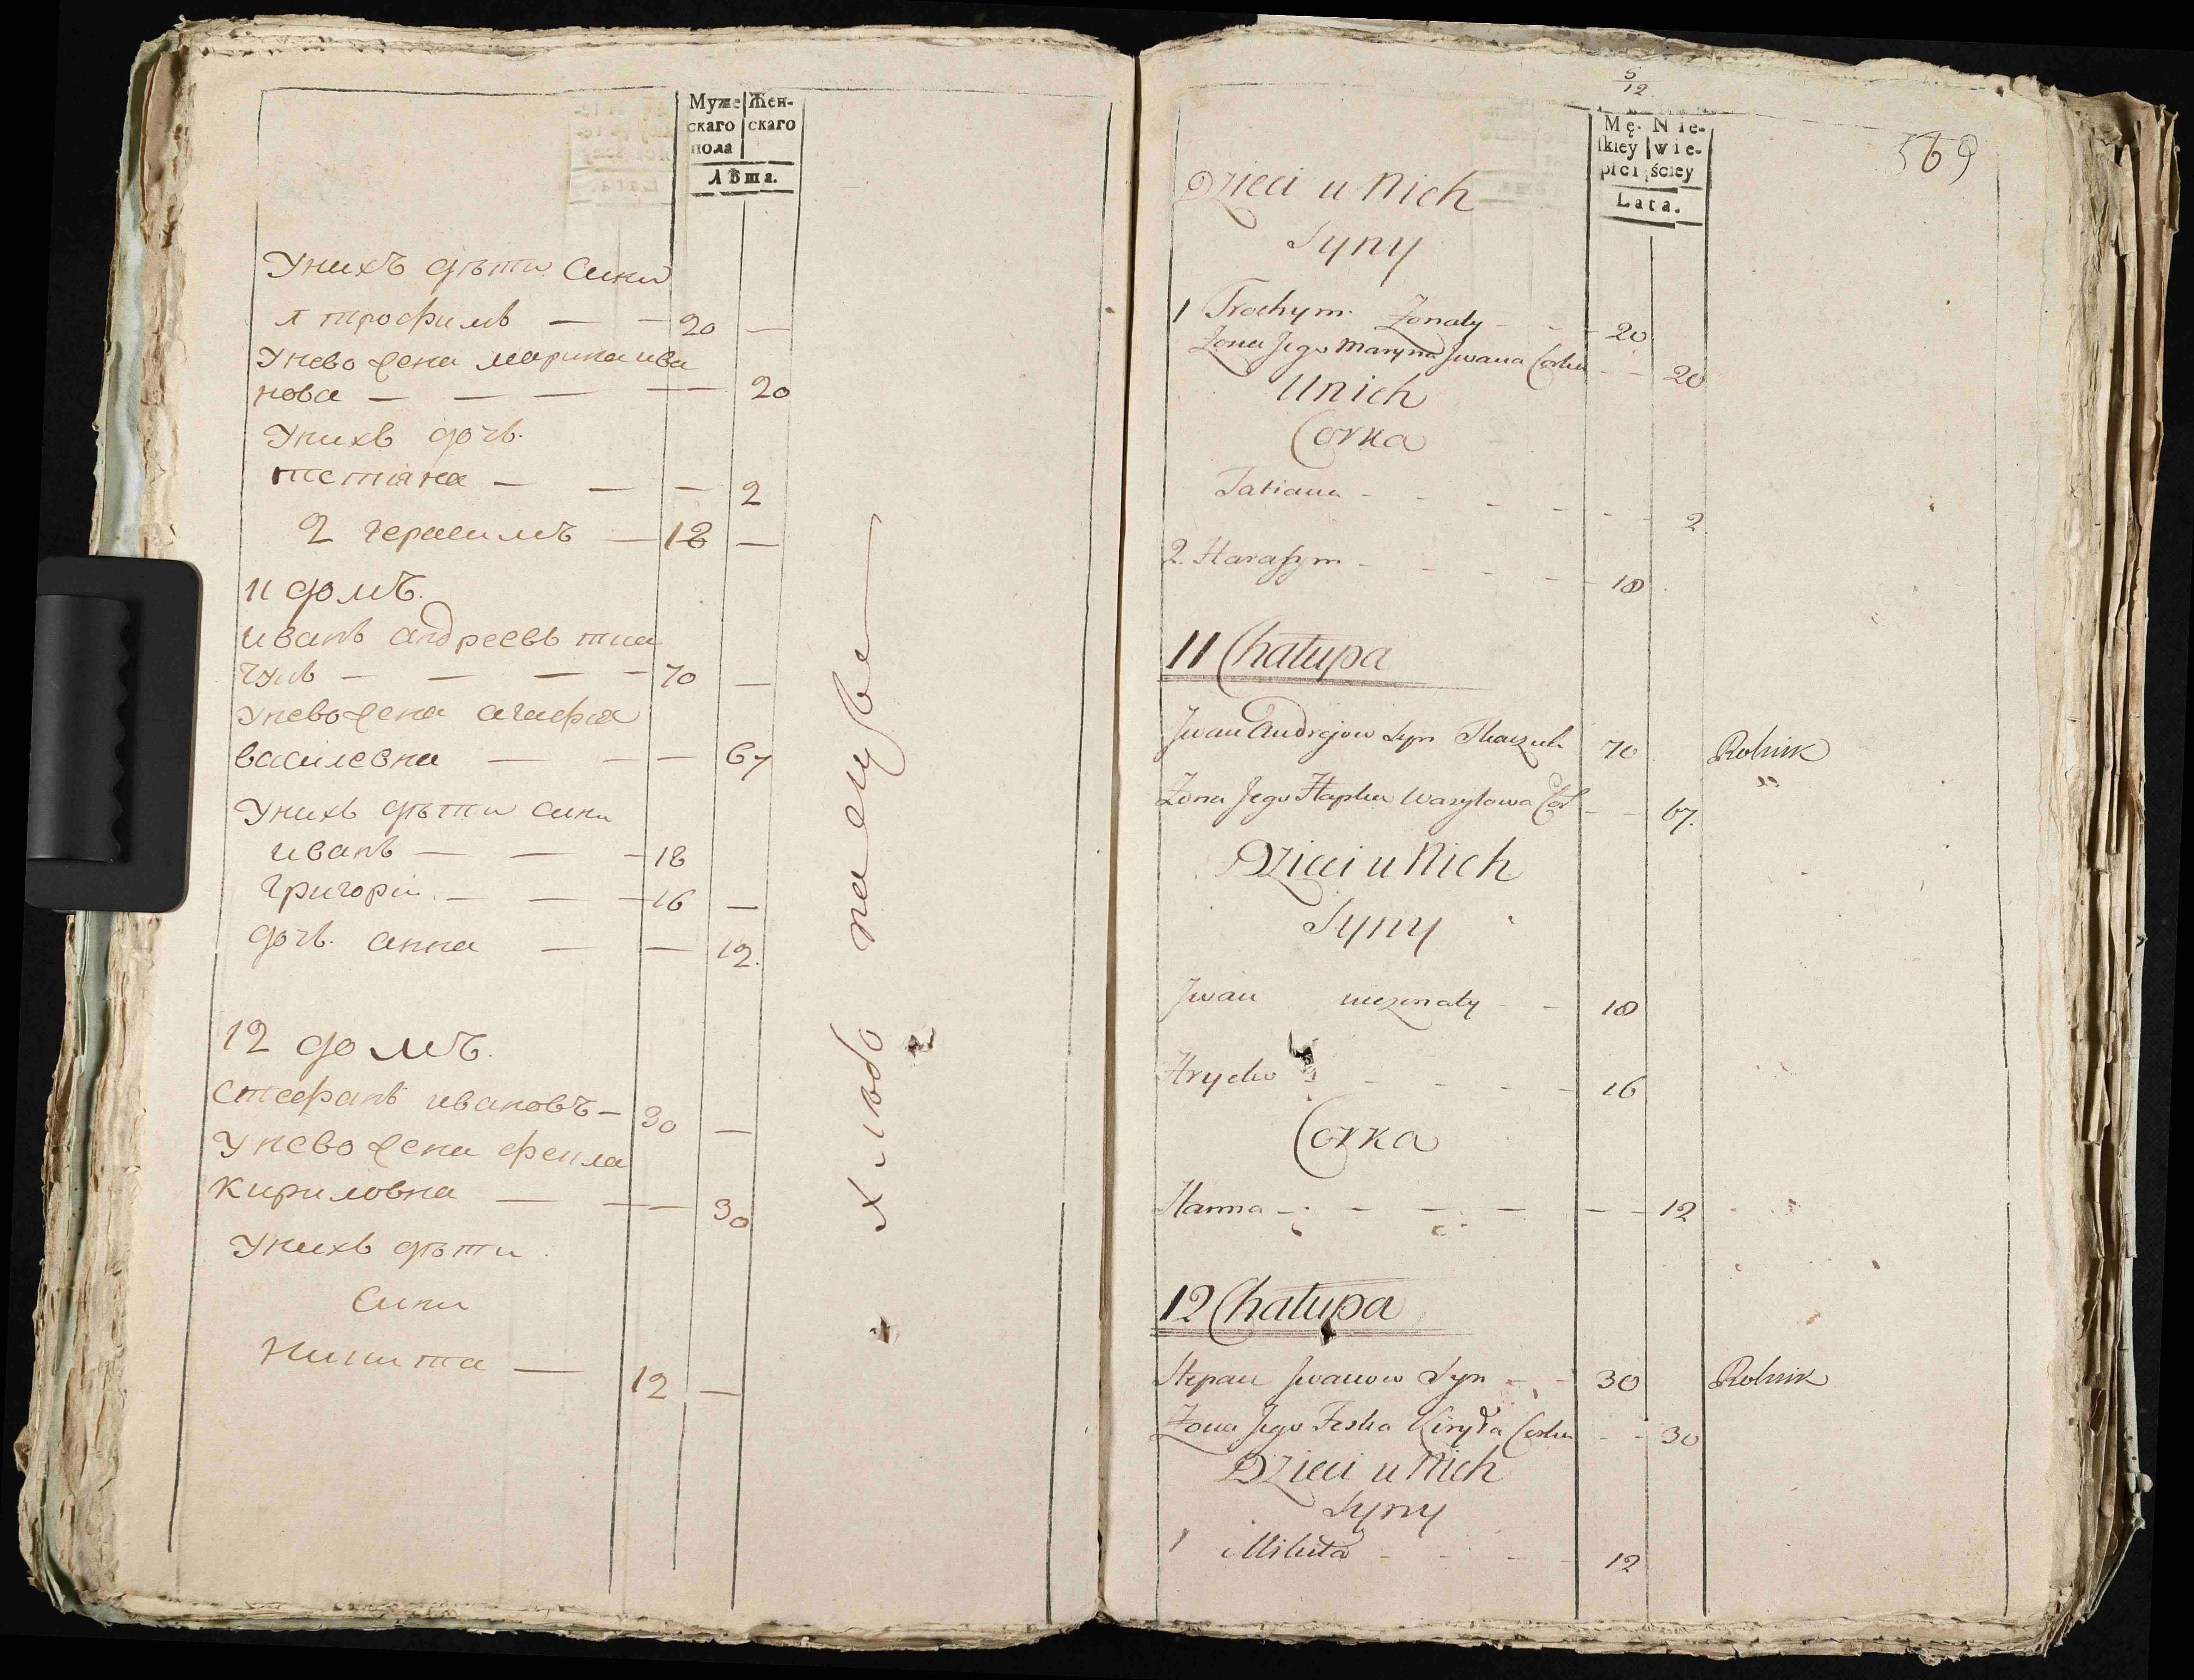 Муже Жен-
скаго скаго
пола
Лѣта.
Унихъ дѣти Сини
1 трофимъ — — 20 —
Унево жена марина ива
нова — — — — 20
Унихъ дочъ.
тетіана — — — 2
2 герасимъ — 18 —
11 домъ.
иванъ андреевъ тка
чукъ — — — 70 —
Унево жена агафія
василевна — — — 67
Унихъ дѣти сини
иванъ — — — 18
григорій — — — 16 —
дочъ. анна — — 12.
12 домъ.
Стефанъ ивановъ — 30 —
Унево жена фекла
кириловна — — — 30
Унихъ дѣти
Сини
Никита — 12 —
Хлѣбо пашусве
5/12
569
Mę- Nie-
ſkiey wie-
płci ściey
Lata.
Dzieci u Nich
Syny
1 Trochym Żonaty - - - 20
Żona Jego Maryna Jwana Corka - - 20
U nich
Corka
Tatiana - - - - - - 2
2. Haraſym - - - - - 18
11 Chałupa
Jwan Andrejow Syn Tkaczuk 70 Rolnik
Żona Jego Hapka Wasylowa Cor - - 67.
Dzieci u Nich
Syny
Jwan nieżonaty - - 18
Hryćko - - - - - 16
Corka
Hanna - - - - - - 12
12 Chałupa
Stepan Jwanow Syn - - 30 Rolnik
Żona Jego Feśka Kiryła Corka - - 30
Dzieci u Nich
Syny
1 Mikita - - - - 12